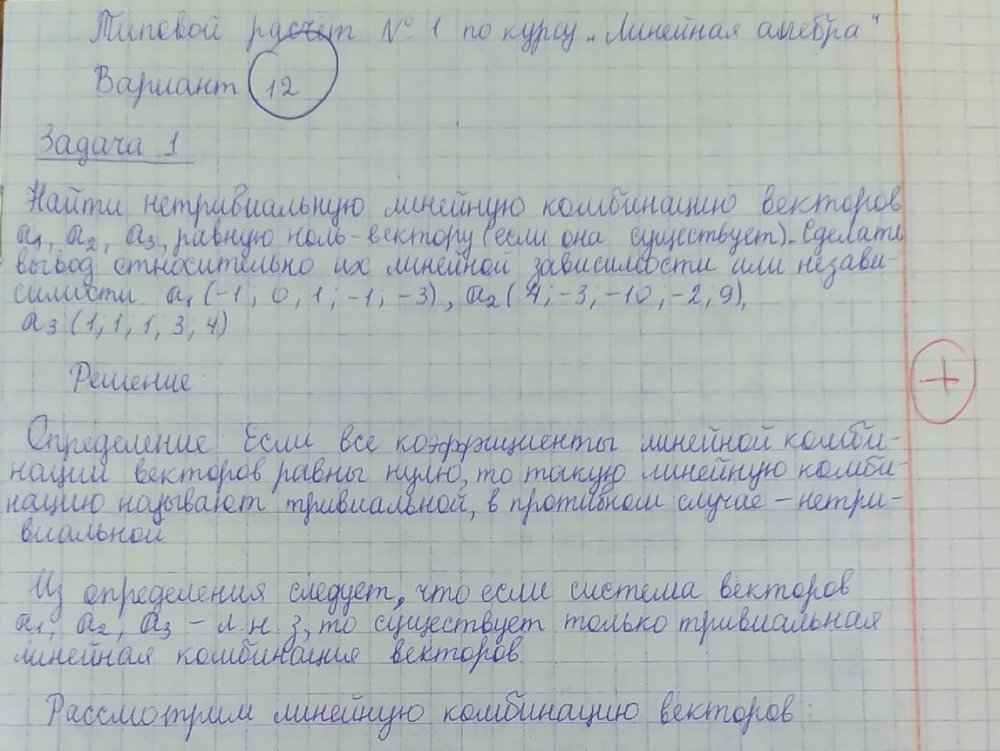 Типовой расчёт № 1 по курсу „Линейная алгебра"
Вариант 12
Задача 1
Найти нетривиальную линейную комбинацию векторов
a1, a2, a3, равную ноль-вектору (если она существует). Сделать
вывод относительно их линейной зависимости или незави-
симости a1 (-1; 0; 1; -1; -3), a2 (4; -3; -10; -2, 9),
a3 (1; 1, 1, 3, 4)
Решение
+
Определение Если все коэффициенты линейной комби-
нации векторов равны нулю, то такую линейную комби-
нацию называют тривиальной, в противном случае - нетри-
виальной
Из определения следует, что если система векторов
a1, a2, a3 - л.н.з, то существует только тривиальная
линейная комбинация векторов.
Рассмотрим линейную комбинацию векторов: